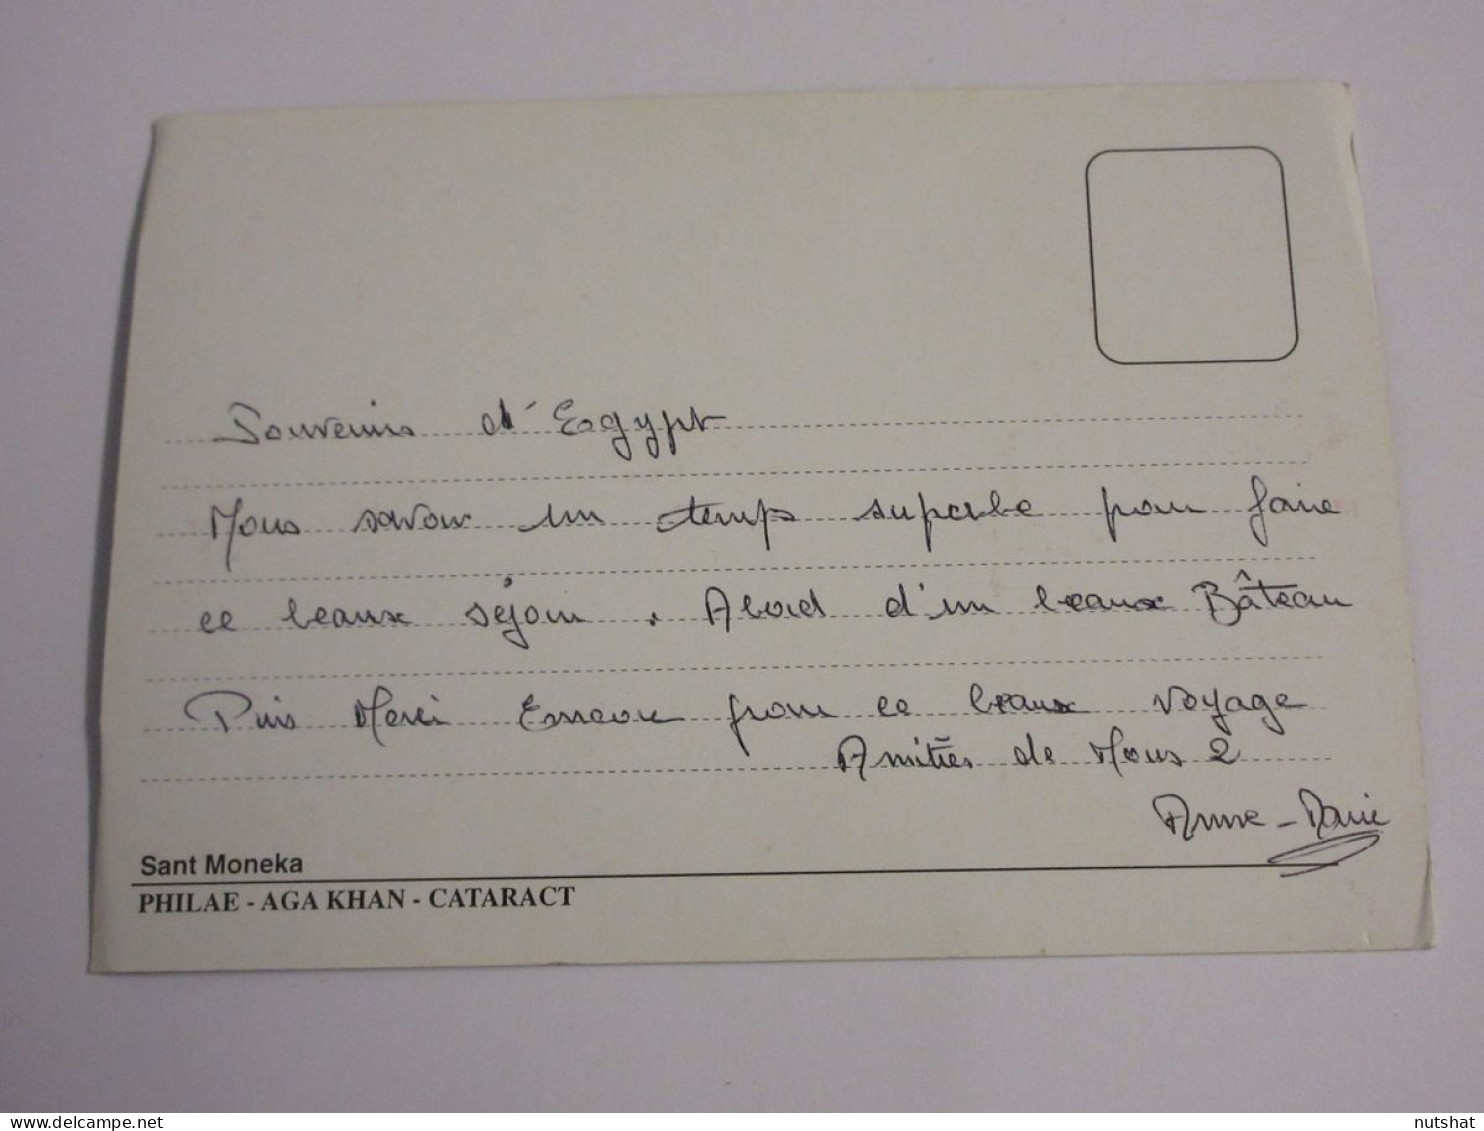 Souvenirs d'Egypt
Nous savons un temps superbe pour faire
ce beaux séjour. Abord d'un beaux Bâteau
Puis Merci Encore pour ce beaux voyage
Amitiés de Nous 2
Anne-Marie
Sant Moneka
PHILAE - AGA KHAN - CATARACT
nutshat